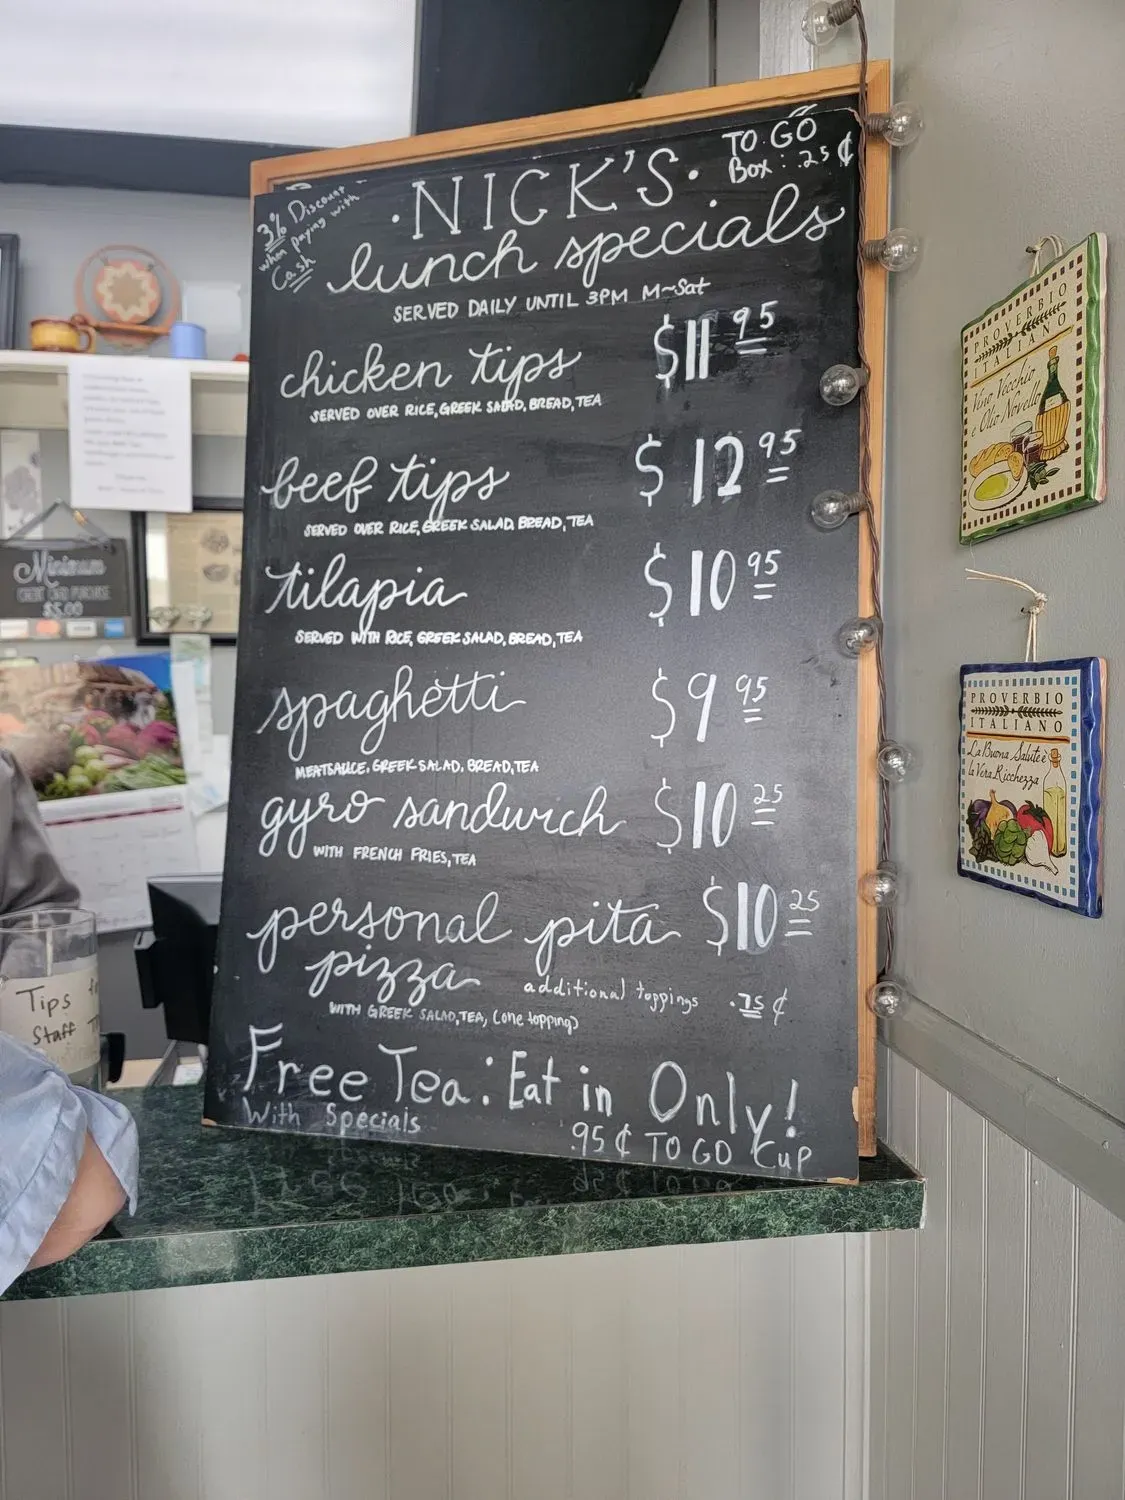 TO GO
Box: .25 ¢
3% Discount
when paying with
Cash
·NICK'S·
lunch specials
SERVED DAILY UNTIL 3PM M~Sat
chicken tips $11 95
SERVED OVER RICE, GREEK SALAD, BREAD, TEA
beef tips $12 95
SERVED OVER RICE, GREEK SALAD, BREAD, TEA
tilapia $10 95
SERVED WITH RICE, GREEK SALAD, BREAD, TEA
spaghetti $9 95
MEATSAUCE, GREEK SALAD, BREAD, TEA
gyro sandwich $10 25
WITH FRENCH FRIES, TEA
personal pita $10 25
pizza
additional toppings .75 ¢
WITH GREEK SALAD, TEA, (one topping)
Free Tea: Eat in Only!
With Specials
.95 ¢ TO GO Cup
Minimum
CREDIT CARD PURCHASE
$5.00
Tips
Staff
PROVERBIO
ITALIANO
Vino Vecchio
e Olio Novello
PROVERBIO
ITALIANO
La Buona Salute è
la Vera Ricchezza